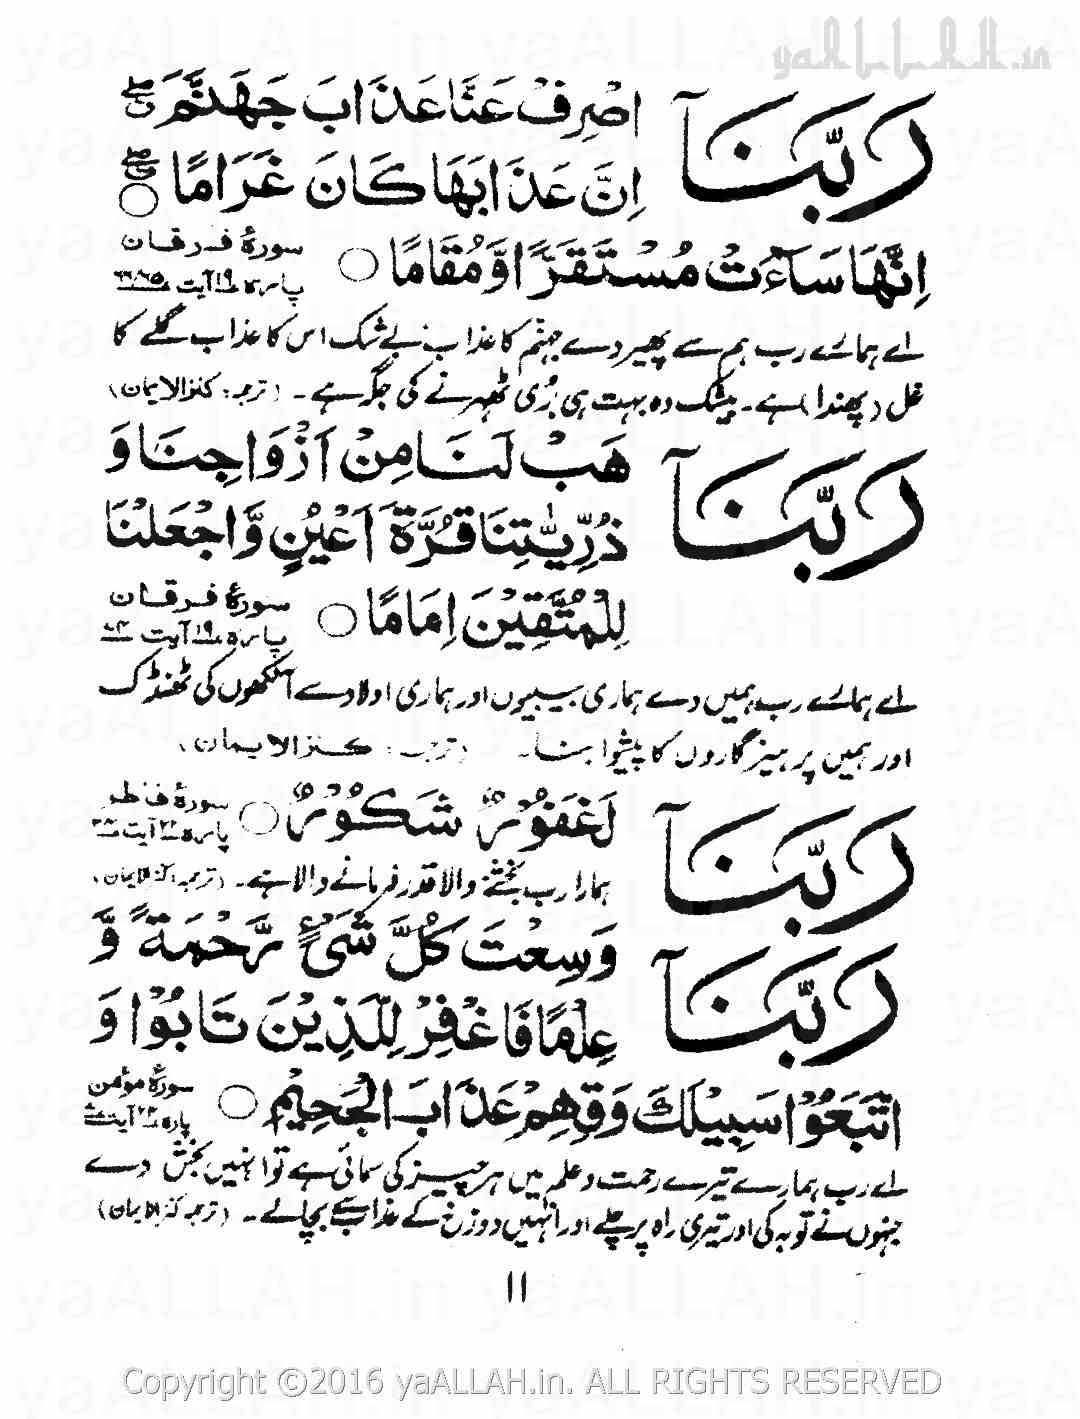 yaALLAH.in
رَبَّنَآ اصْرِفْ عَنَّا عَذَابَ جَهَنَّمَ
اِنَّ عَذَابَهَا كَانَ غَرَامًا
اِنَّهَا سَآءَتْ مُسْتَقَرًّا وَّمُقَامًا ○ سورۂ فرقان
پارہ ۱۹ آیت ۶۵/۶۶
اے ہمارے رب ہم سے پھیر دے جہنم کا عذاب بے شک اس کا عذاب گلے کا
غل (پھندا) ہے۔ بیشک وہ بہت ہی بُری ٹھہرنے کی جگہ ہے۔ (ترجمہ: کنزالایمان)
رَبَّنَآ هَبْ لَنَا مِنْ اَزْوَاجِنَا وَ
ذُرِّيّٰتِنَا قُرَّةَ اَعْيُنٍ وَّاجْعَلْنَا
لِلْمُتَّقِيْنَ اِمَامًا ○ سورۂ فرقان
پارہ ۱۹ آیت
اے ہمارے رب ہمیں دے ہماری بیبیوں اور ہماری اولاد سے آنکھوں کی ٹھنڈک
اور ہمیں پرہیزگاروں کا پیشوا بنا۔ (ترجمہ: کنزالایمان)
رَبَّنَآ لَغَفُوْرٌ شَكُوْرٌ ○ سورۂ فاطر
پارہ ۲۲ آیت
ہمارا رب بخشنے والا قدر فرمانے والا ہے۔ (ترجمہ: کنزالایمان)
رَبَّنَآ وَسِعْتَ كُلَّ شَيْءٍ رَّحْمَةً وَّ
عِلْمًا فَاغْفِرْ لِلَّذِيْنَ تَابُوْا وَ
اتَّبَعُوْا سَبِيْلَكَ وَقِهِمْ عَذَابَ الْجَحِيْمِ ○ سورۂ مؤمن
پارہ ۲۴ آیت
اے رب ہمارے تیرے رحمت و علم میں ہر چیز کی سمائی ہے تو انہیں بخش دے
جنہوں نے توبہ کی اور تیری راہ پر چلے اور انہیں دوزخ کے عذاب سے بچالے۔ (ترجمہ کنزالایمان)
۱۱
Copyright ©2016 yaALLAH.in. ALL RIGHTS RESERVED